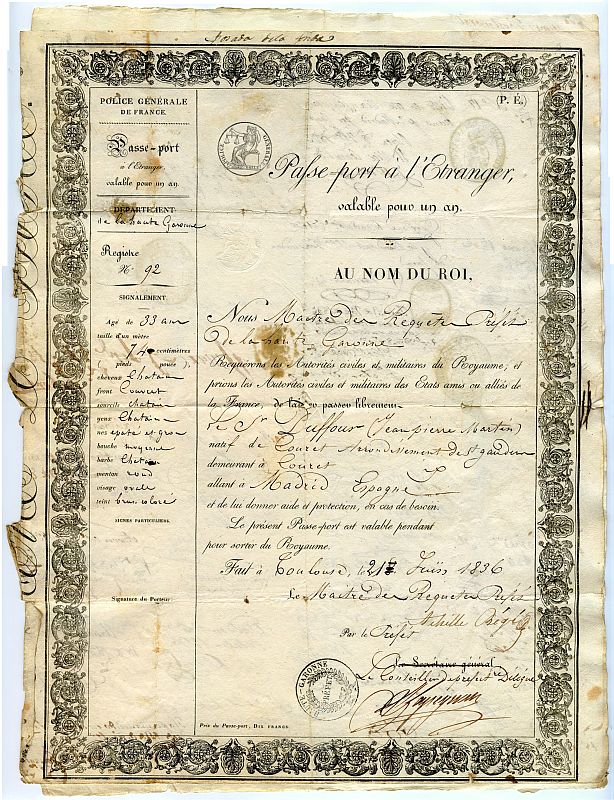 POLICE GÉNÉRALE
DE FRANCE.
Passe-port
à l'Etranger,
valable pour un an.
DÉPARTEMENT
de la haute Garonne
Registre
N.° 92
SIGNALEMENT.
Agé de 33 ans
taille d'un mètre
74 centimètres
pieds pouces
cheveux Chatain
front Couvert
sourcils chatain
yeux Chatain
nez epaté et gros
bouche moyenne
barbe Chatain
menton rond
visage ovale
teint brun coloré
SIGNES PARTICULIERS.
Signature du Porteur
(P. É.)
Passe-port à l'Etranger,
valable pour un an.
AU NOM DU ROI,
Nous Maitre des Requetes Préfet
de la haute Garonne
Requérons les Autorités civiles et militaires du Royaume, et
prions les Autorités civiles et militaires des Etats amis ou alliés de
la France, de laisser passer librement
le Sr Duffour (Jean pierre Martin)
natif de Touret Arrondissement de St gaudens
demeurant à Touret
allant à Madrid Espagne
et de lui donner aide et protection, en cas de besoin.
Le présent Passe-port est valable pendant
pour sortir du Royaume.
Fait à Toulouse, le 1836
Le Maitre des Requetes Préfet
Achille
Par le Préfet
Le Secrétaire général
Le Conseiller de préfecture Délégué
HTE. GARONNE
PRÉFET
Prix du Passe-port, DIX FRANCS.